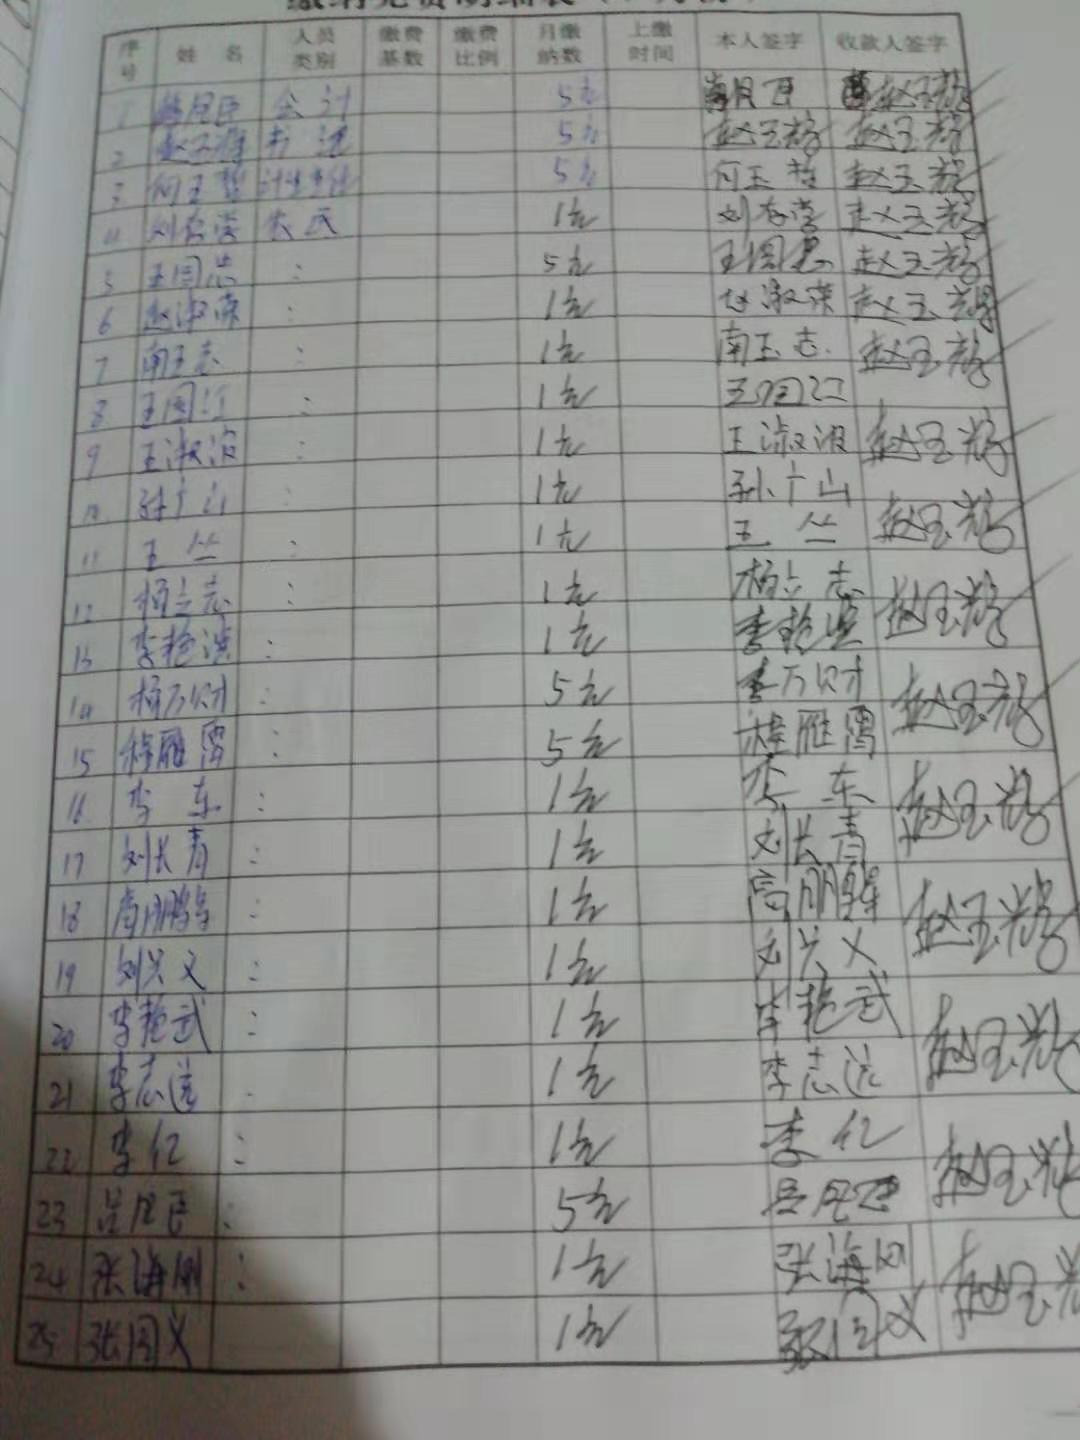 序号 姓名 人员类别 缴费基数 缴费比例 月缴纳数 上缴时间 本人签字 收款人签字
1 会计 5元
2 书记 5元 赵玉辉 赵玉辉
3 何玉哲 5元 何玉哲 赵玉辉
4 农民 1元 赵玉辉
5 王国忠 : 5元 王国忠 赵玉辉
6 赵淑荣 : 1元 赵淑荣 赵玉辉
7 南玉志 : 1元 南玉志 赵玉辉
8 王国江 : 1元 王国江
9 王淑波 : 1元 王淑波 赵玉辉
10 孙广山 : 1元 孙广山
11 王丛 : 1元 王丛 赵玉辉
12 杨立志 : 1元 杨立志
13 李艳滨 : 1元 李艳滨 赵玉辉
14 杨万财 : 5元 万财 赵玉辉
15 雁 : 5元 雁
16 李东 : 1元 李东 赵玉辉
17 刘长青 : 1元 刘长青
18 高鹏 : 1元 高鹏 赵玉辉
19 刘兴义 : 1元 刘兴义
20 李艳武 : 1元 李艳武 赵玉辉
21 李志远 1元 李志远
22 李红 : 1元 李红 赵玉辉
23 : 5元
24 张海刚 : 1元 张海刚 赵玉
25 张国义 1元 张国义